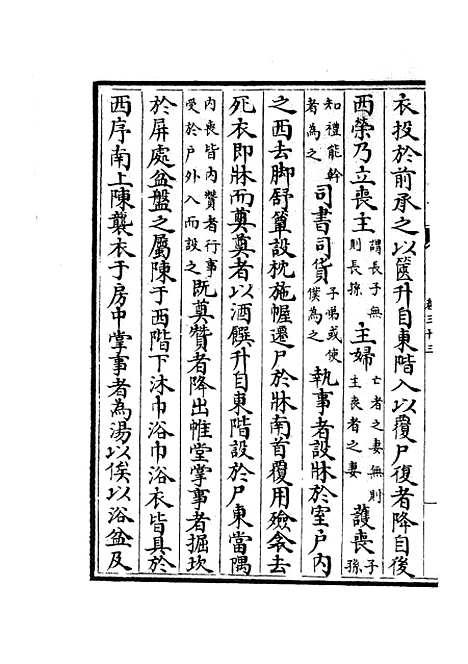 衣投於前承之以篋升自東階入以覆尸復者降自後
西榮乃立喪主謂長子無則長孫主婦亡者之妻無則主喪者之妻護喪子孫
知禮能幹者為之司書司貨子弟或使僕為之執事者設牀於室戶內
之西去脚舒簟設枕施幄遷尸於牀南首覆用殮衾去
死衣即牀而奠奠者以酒饌升自東階設於尸東當隅
內喪皆內贊者行事受於戶外入而設之既奠贊者降出帷堂掌事者掘坎
於屏處盆盤之屬陳于西階下沐巾浴巾浴衣皆具於
西序南上陳襲衣于房中掌事者為湯以俟以浴盆及
卷三十三